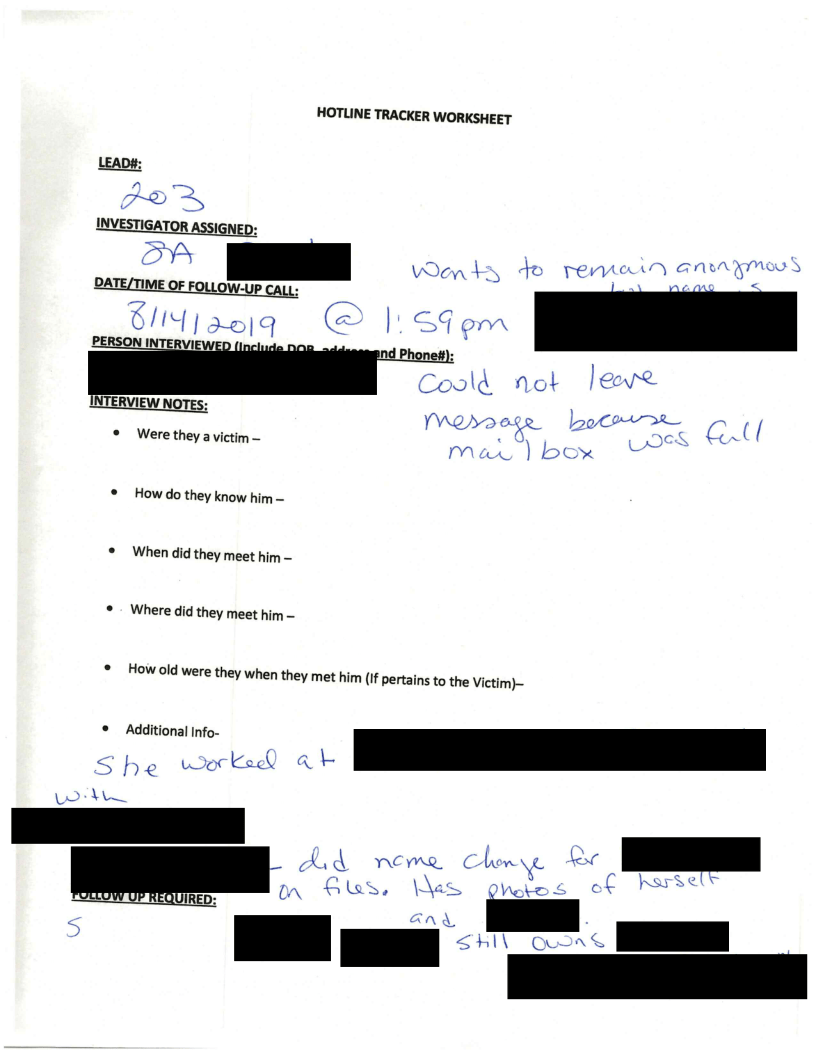 HOTLINE TRACKER WORKSHEET
LEAD#:
203
INVESTIGATOR ASSIGNED:
SA
wants to remain anonymous
name
DATE/TIME OF FOLLOW-UP CALL:
8/14/2019 @ 1:59pm
PERSON INTERVIEWED (Include DOB, address and Phone#):
Could not leave
message because
mailbox was full
INTERVIEW NOTES:
• Were they a victim –
• How do they know him –
• When did they meet him –
• Where did they meet him –
• How old were they when they met him (If pertains to the Victim)–
• Additional Info-
She worked at
with
- did name change for
on files. Has photos of herself
FOLLOW UP REQUIRED:
and .
S
still owns